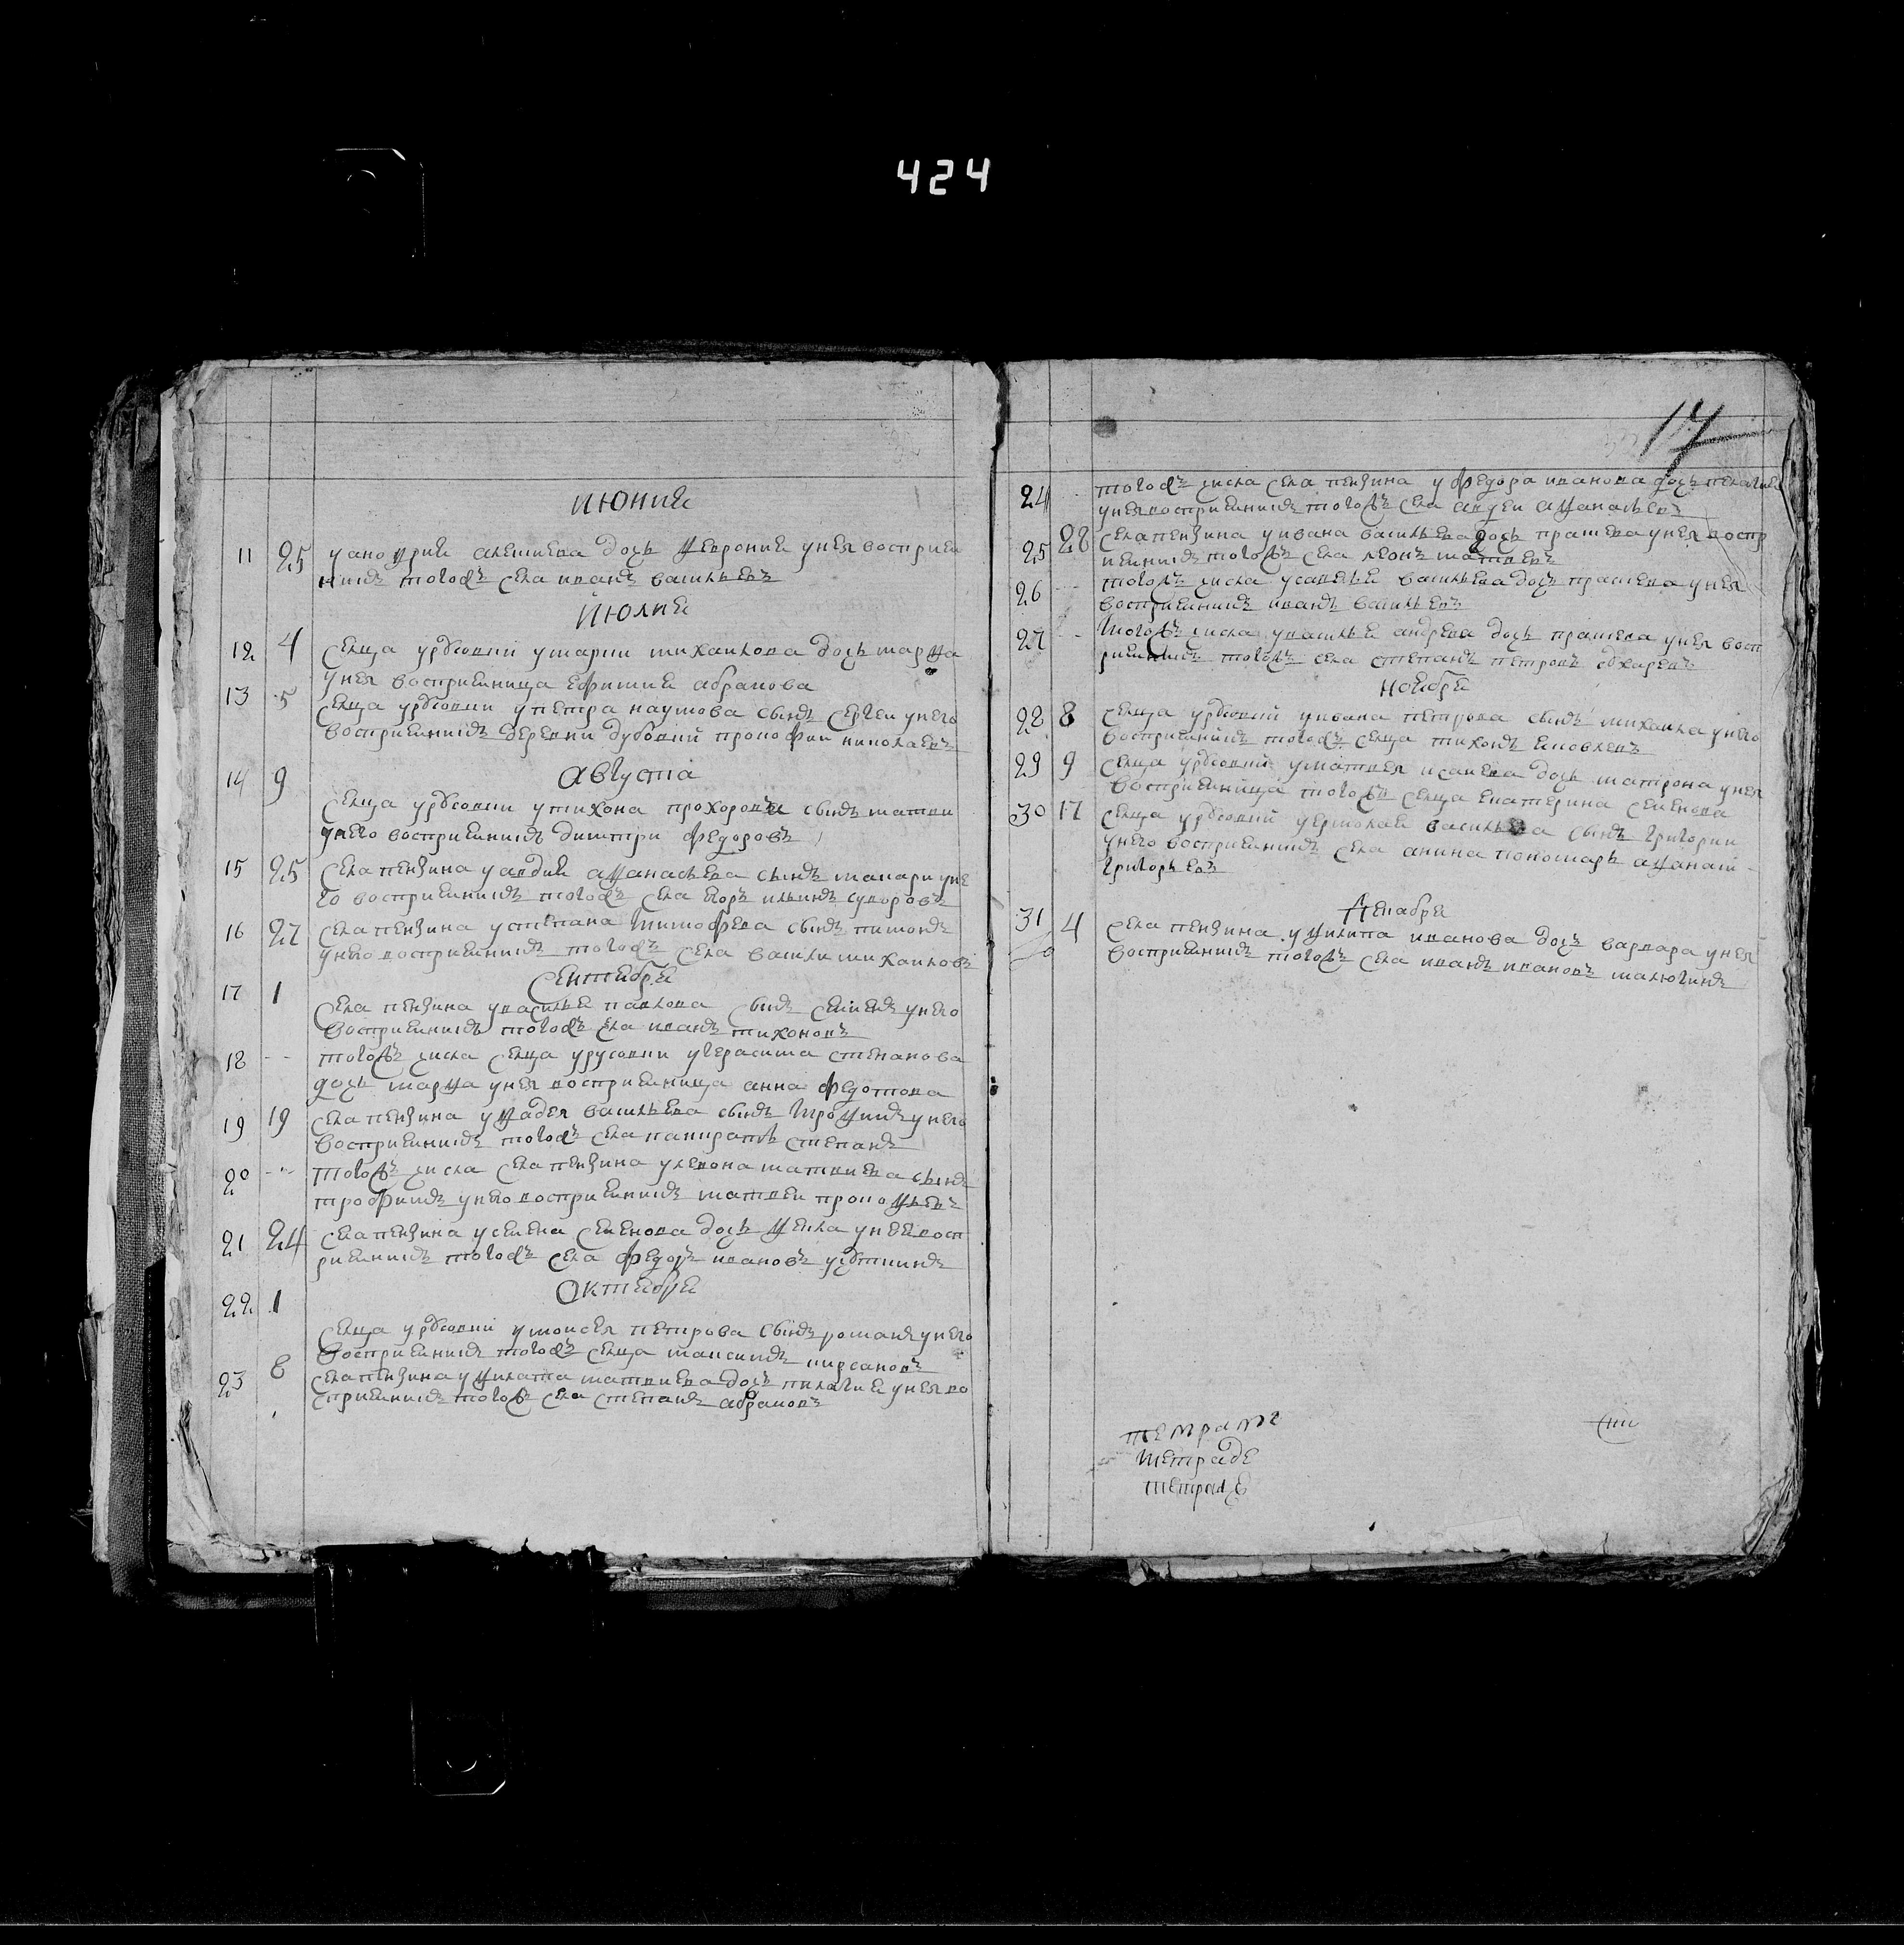 424
17
июния
11 25 у анофрия алешиева дочь феврония у нея восприем
никъ тогожъ села иванъ васильевъ
июлия
12 4 сельца урусовки у марки михаилова дочь марфа
у нея восприемница ефимия абрамова
13 5 сельца урусовки у петра наумова сынъ сергеи у него
восприемникъ деревни дубовки прокофии николаевъ
августа
14 9
сельца урусовки у тихона прохоровъа сынъ матвеи
у него восприемникъ дмитри федоровъ
15 25 села пензина у авдия афанасьева сынъ макари у не
го восприемникъ тогожъ села егоръ ильинъ суворовъ
16 27 села пензина у степана тимофева сынъ пимонъ
у него восприемникъ тогожъ села василии михаиловъ
сентебря
17 1
села пензина у василья павлова сынъ семенъ у него
восприемникъ тогожъ села иванъ тихоновъ
18 -- тогожъ числа сельца урусовки у герасима степанова
дочь марфа у нея восприемница анна федотова
19 19 села пензина у фадея васильева сынъ трофимъ у него
восприемникъ тогожъ села панкратъ степанъ
20 -- тогожъ числа села пензина у левона матвиева сынъ
трофимъ у него восприемникъ матвеи прокофьевъ
21 24 села пензина у семена семенова дочь фекла у нея восп
риемникъ тогожъ села федоръ ивановъ
октебря
22 1
сельца урусовки у моисея петрова сынъ романъ у него
восприемникъ тогожъ сельца максимъ кирсановъ
23 6 села пензина у филата матвиева дочь пилагия у нея во
сприемникъ тогожъ села степанъ абрамовъ
24 -- тогожъ числа села пензина у федора иванова дочь пелагия
у нея восприемникъ тогожъ села авдеи афанасьевъ
25 28 села пензина у ивана васильева дочь праскева у нея воспр
иемникъ тогожъ села леонъ матвевъ
26 -- тогожъ числа у савелья васильева дочь праскева у нея
восприемникъ иванъ васильевъ
27 -- тогожъ числа у василья андрева дочь праскева у нея восп
риемникъ тогожъ села степанъ петровъ
ноебря
28 8 сельца урусовки у ивана петрова сынъ михаила у него
восприемникъ тогожъ сельца тихонъ яковлевъ
29 9 сельца урусовки у матвея исаева дочь матрона у нея
восприемница тогожъ сельца екатерина семенова
30 17 сельца урусовки у ермолая васильева сынъ григории
у него восприемникъ села анина пономарь афанаси
григорьевъ
декабря
31 4 села пензина у филипа иванова дочь варвара у нея
восприемникъ тогожъ села иванъ ивановъ малюгинъ
тетраде
тетраде